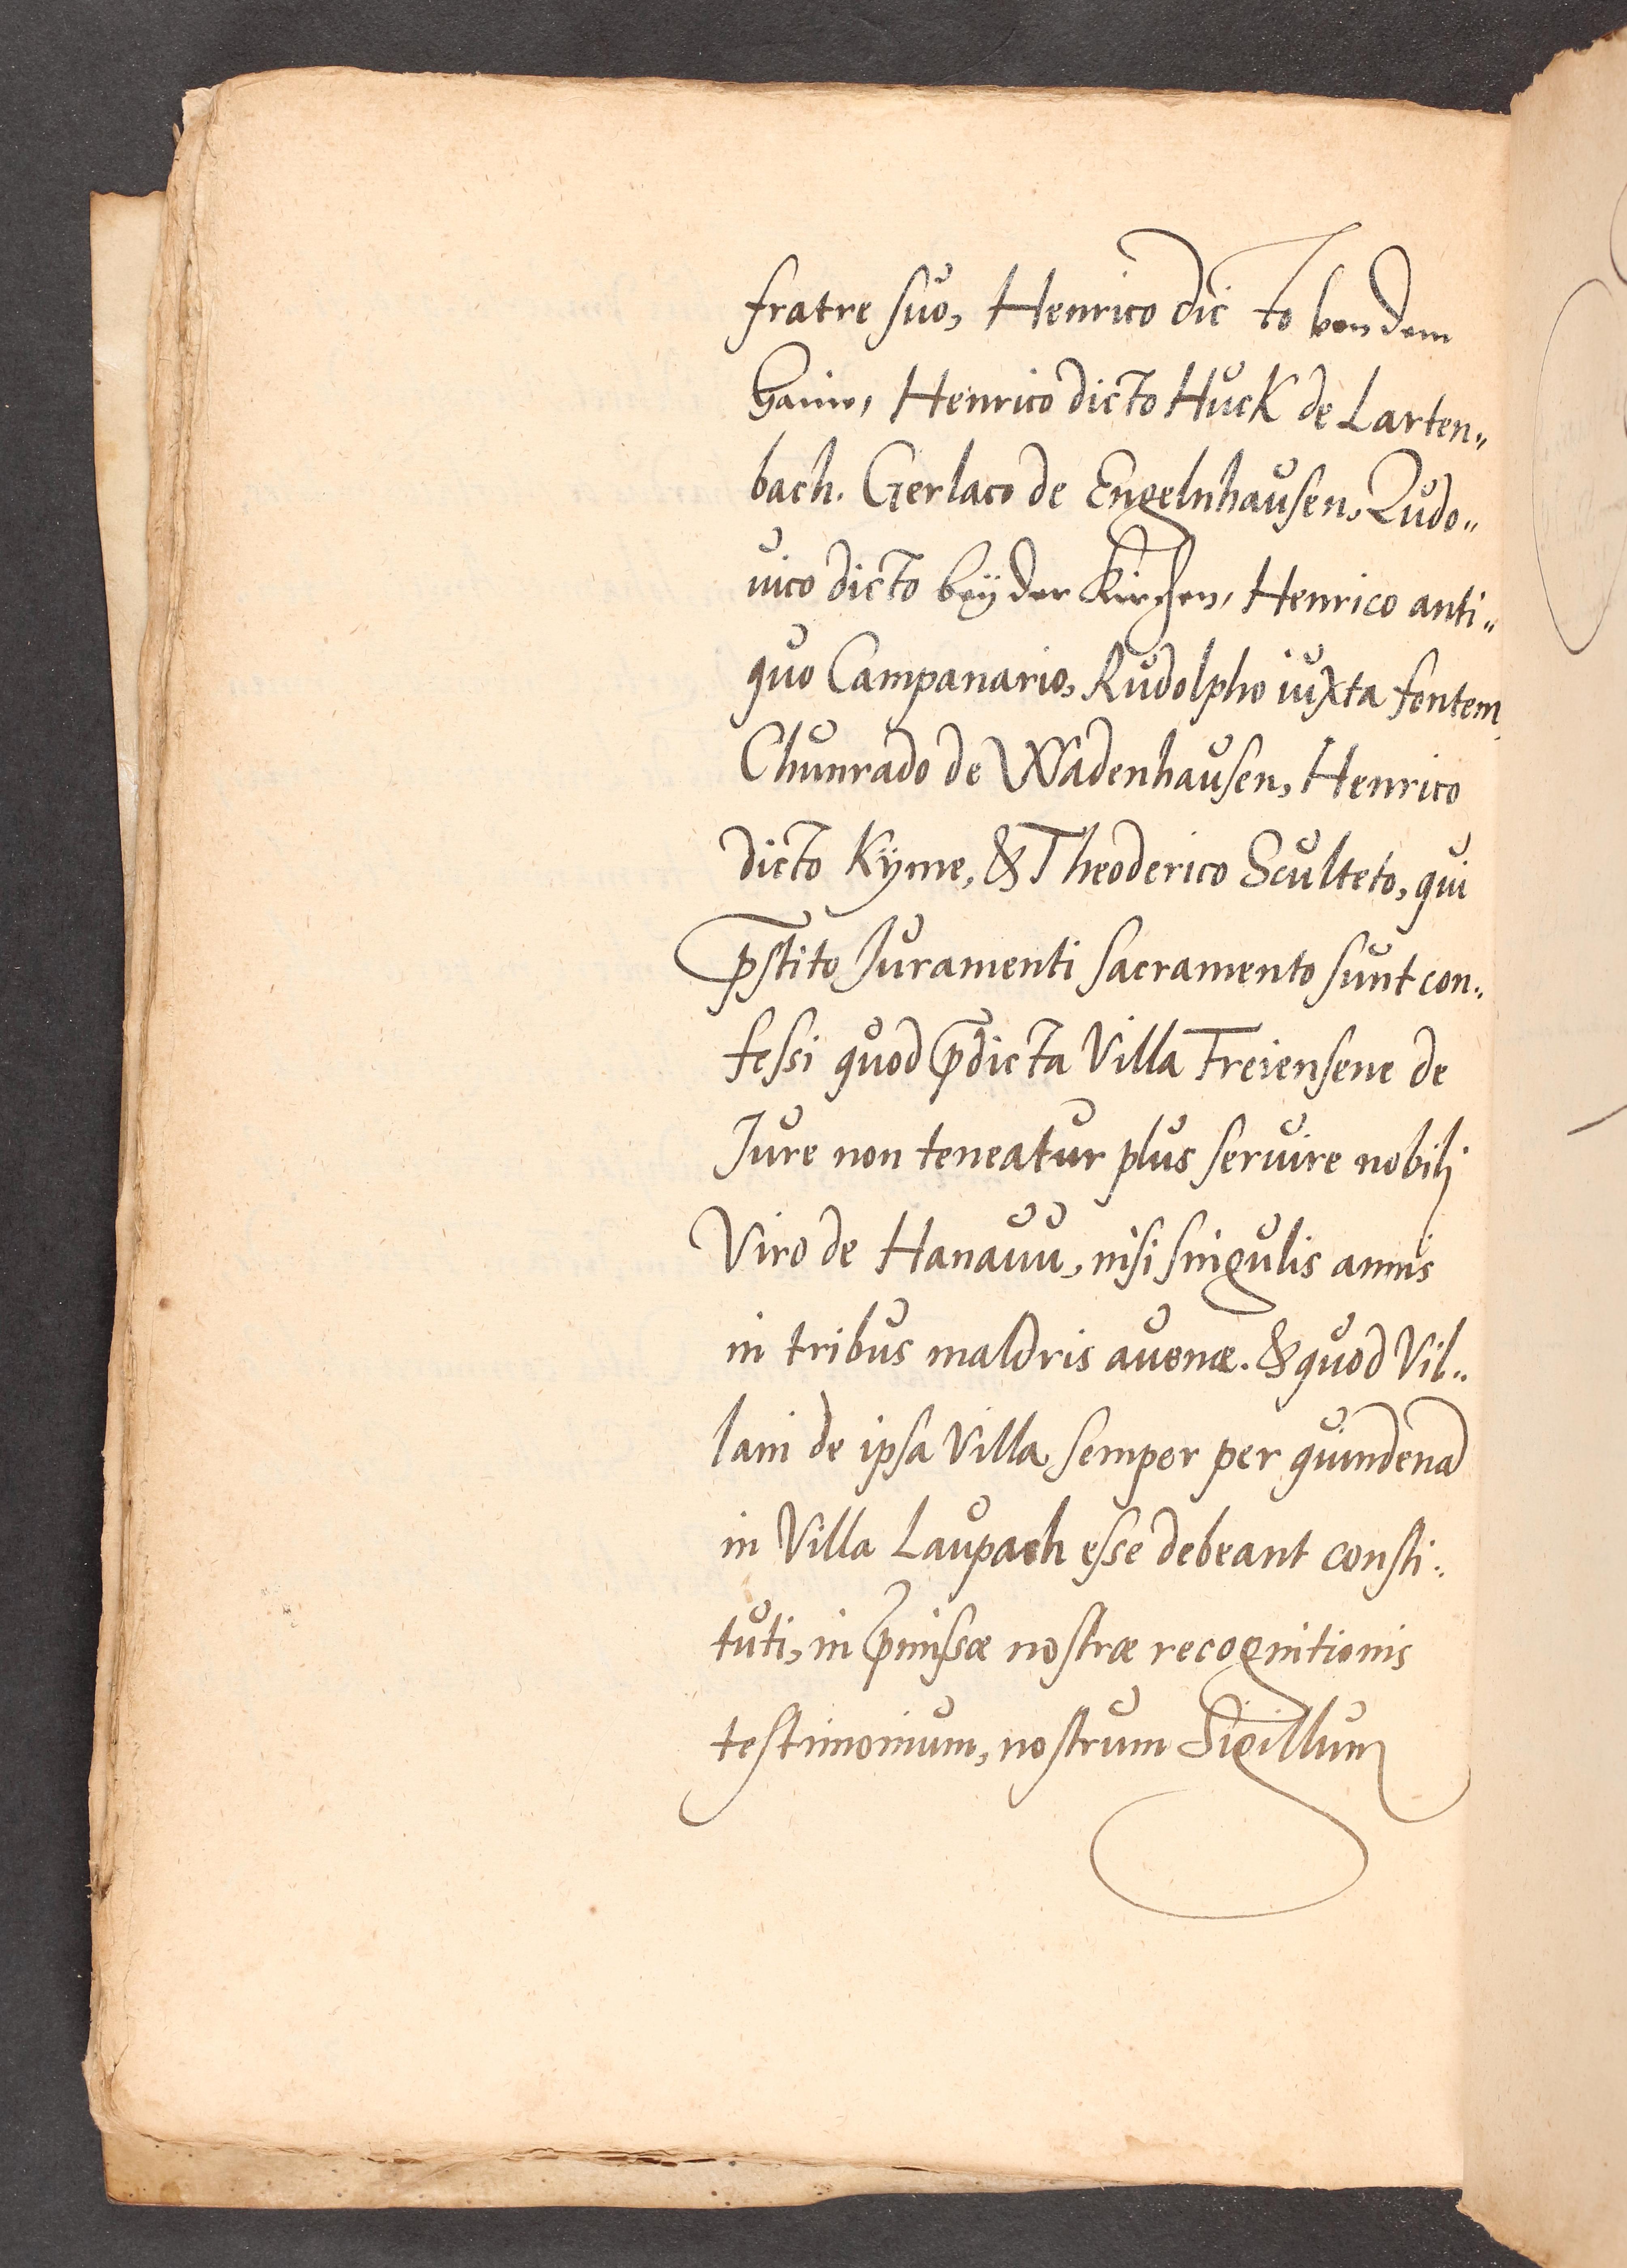 fratre suo, Henrico dicto von dem
Hain, Henrico dicto Huck de Larten„
bach. Gerlaco de Engelnhausen, Ludo„
uico dicto beÿ der Kirchen, Henrico anti„
quo Campanario, Rudolpho iuxta fontem,
Chunrado de Wadenhausen, Henrico
dicto Kÿme, & Theoderico Sculteto, qui
p̄stito Juramenti sacramento sunt con„
fessi quod p̄dicta Villa Treiensene de
Jure non teneatur plus seruire nobili
Viro de Hanauu, nisi singulis annis
in tribus maldris auenæ. & quod Vil„
lani de ipsa Villa semper per quindenā
in Villa Laupach esse debeant consti„
tuti, in p̄missæ nostræ recognitionis
testimonium, nostrum Sigillum